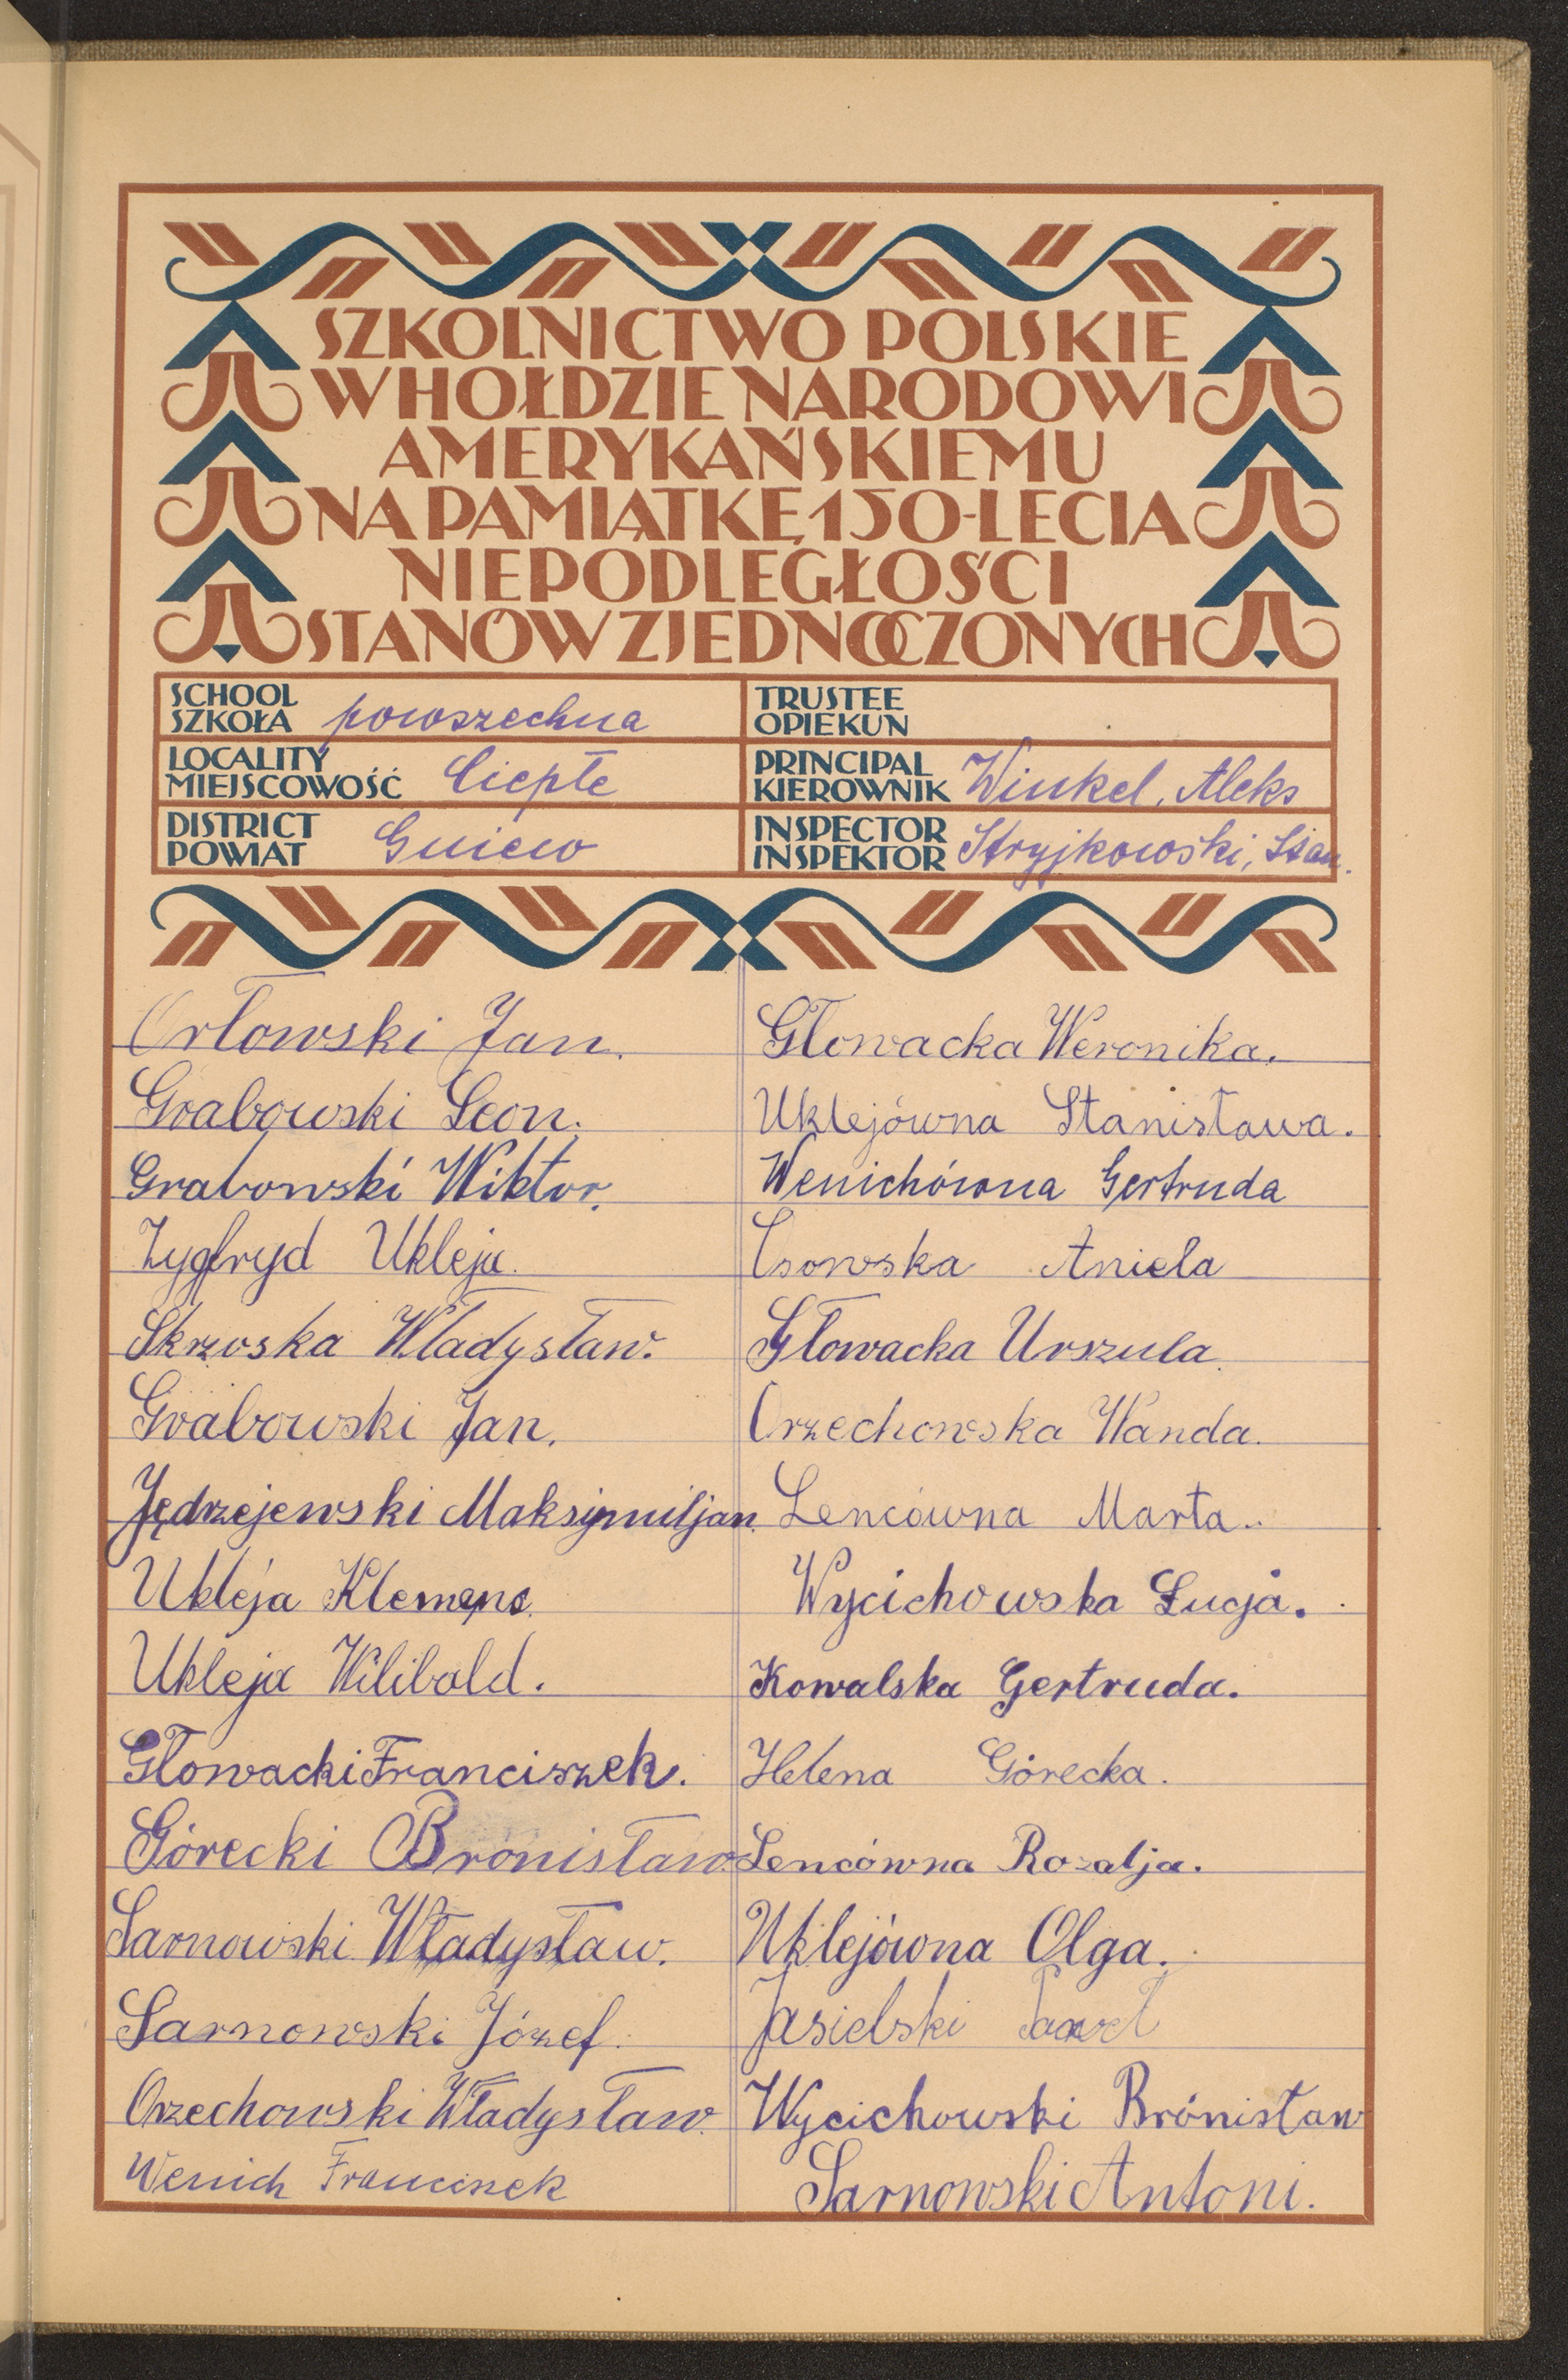 SZKOLNICTWO POLSKIE
W HOŁDZIE NARODOWI
AMERYKAŃSKIEMU
NA PAMIĄTKĘ 150-LECIA
NIEPODLEGŁOŚCI
STANÓW ZJEDNOCZONYCH
SCHOOL
SZKOŁA powszechna
TRUSTEE
OPIEKUN
LOCALITY
MIEJSCOWOŚĆ Ciepłe
PRINCIPAL
KIEROWNIK Winkel, Aleks
DISTRICT
POWIAT Gniew
INSPECTOR
INSPEKTOR Stryjkowski, Stan.
Orłowski Jan.
Grabowski Leon.
Grabowski Wiktor.
Zygfryd Ukleja.
Skrzoska Władysław.
Grabowski Jan.
Jędrzejewski Maksymiljan.
Ukleja Klemens.
Ukleja Wilibald.
Głowacki Franciszek.
Górecki Bronisław
Sarnowski Władysław.
Sarnowski Józef.
Orzechowski Władysław.
Wenich Franciszek
Głowacka Weronika.
Uklejówna Stanisława.
Wenichówna Gertruda
Osowska Aniela
Głowacka Urszula.
Orzechowska Wanda.
Lencówna Marta.
Wycichowska Łucja.
Kowalska Gertruda.
Helena Górecka.
Lencówna Rozalja.
Uklejówna Olga.
Jasielski Paweł
Wycichowski Brónisław
Sarnowski Antoni.